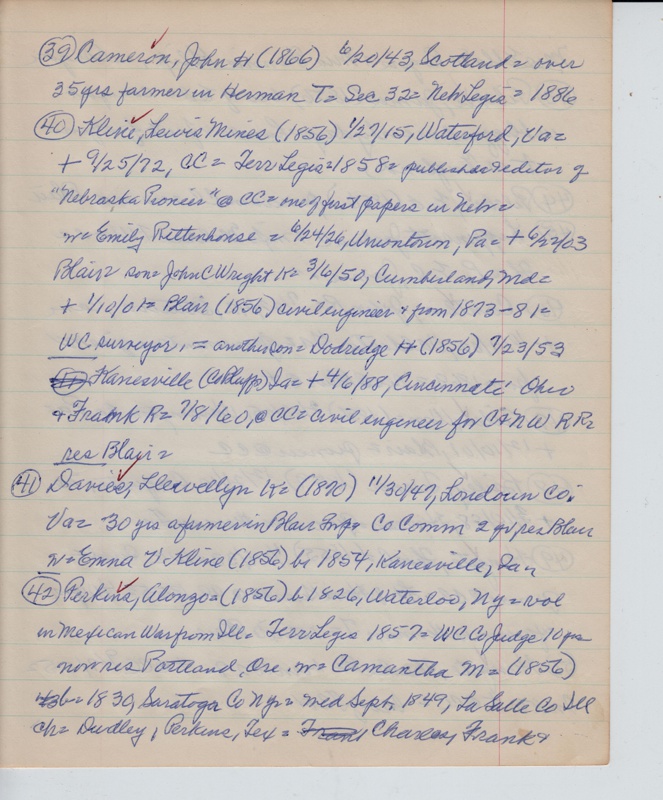 (39) Cameron, John H (1866) 6/20/43, Scotland = over
35 yrs farmer in Herman T = Sec 32 = Neb Legis = 1886
(40) Kline, Lewis Mines (1856) 1/27/15, Waterford, Va =
+ 9/25/72, CC = Terr Legis = 1858 = publisher & editor of
"Nebraska Pioneer" @ CC = one of first papers in Nebr =
w = Emily Rittenhouse = 6/24/26, Uniontown, Pa = + 6/22/03
Blair = son = John C Wright K = 3/6/50, Cumberland, Md =
+ 1/10/01 = Blair (1856) civil engineer & from 1873-81 =
WC surveyor, = another son = Dodridge H (1856) 7/23/53
Kanesville (Co Bluffs) Ia = + 4/6/88, Cincinnati Ohio
& Frank R = 7/8/60, @ CC = civil engineer for C & NW RR =
res Blair =
(41) Davies, Llewellyn K = (1870) 11/30/47, Loudoun Co.
Va = 30 yrs a farmer in Blair Twp = Co Comm 2 yr res Blair
w = Emma V Kline (1856) b. 1854, Kanesville, Ia =
(42) Perkins, Alonzo = (1856) b 1826, Waterloo, Ny = vol
in Mexican War from Ill = Terr Legis 1857 = WC Co Judge 10 yrs
now res Portland, Ore. w = Camantha M = (1856)
b = 1830, Saratoga Co Ny = med Sept. 1849, La Salle Co Ill
ch = Dudley, Perkins, Tex = Charles, Frank &